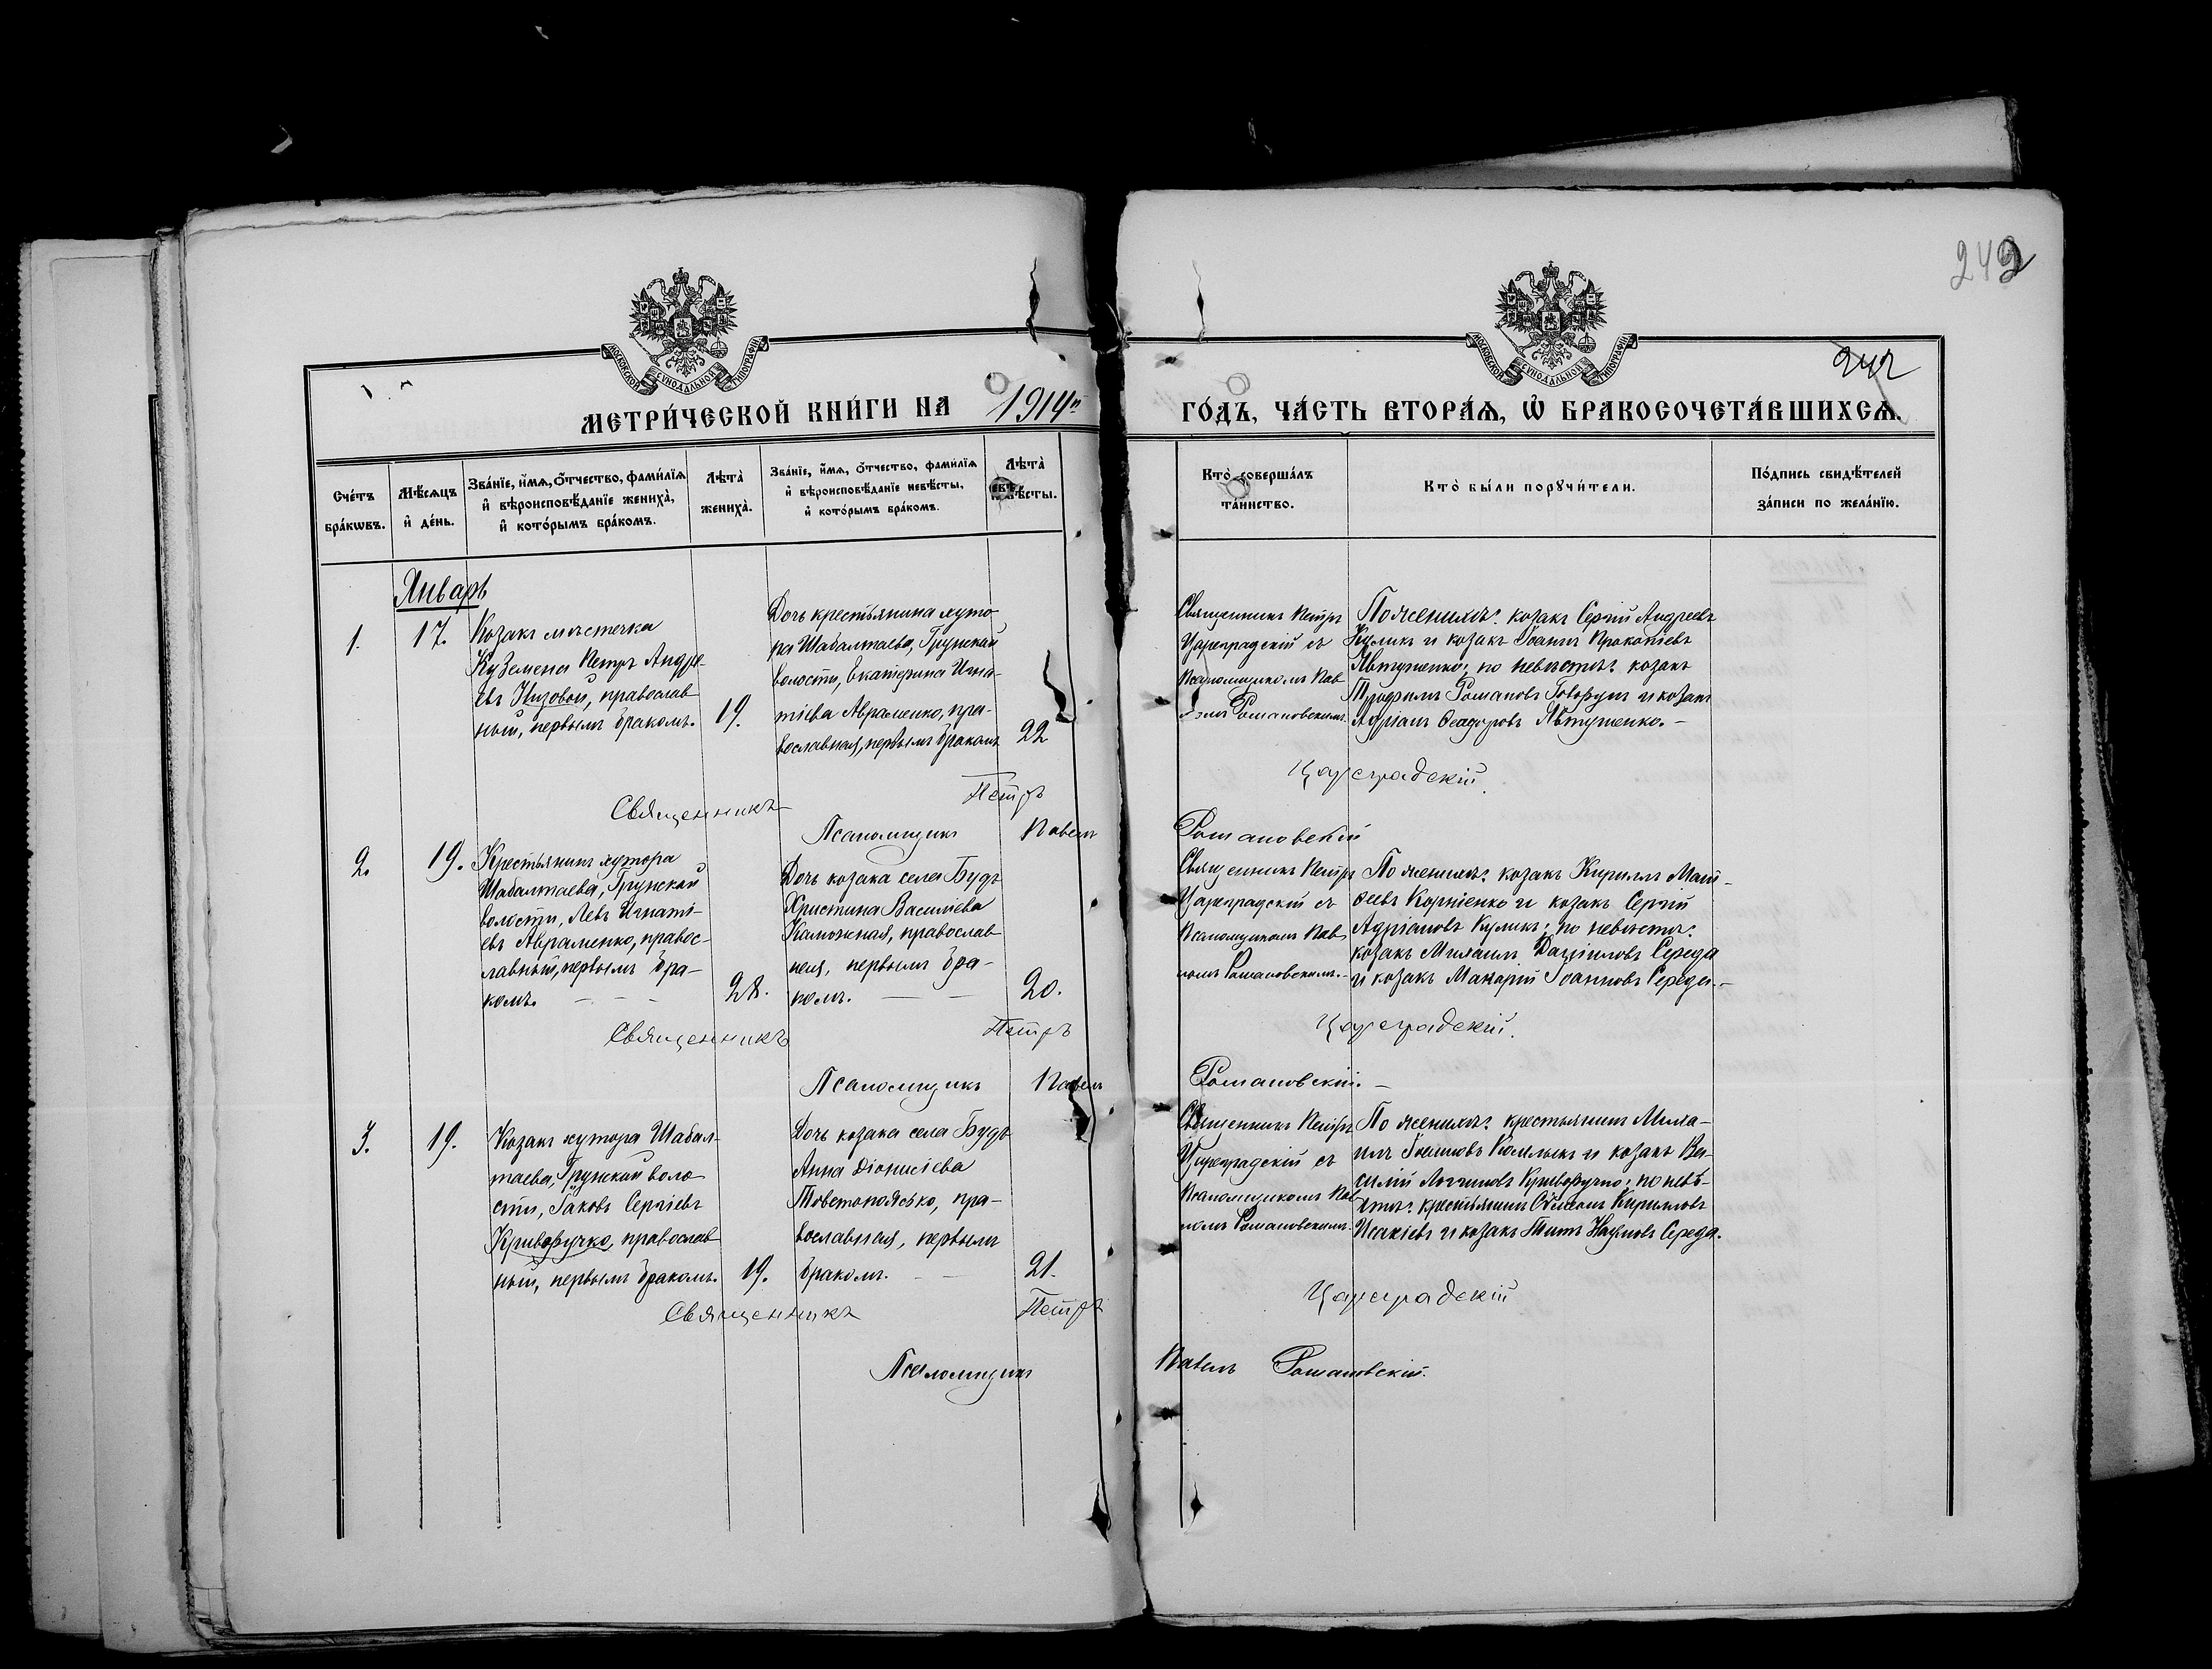 242
242
МОСКОВСКОЙ СѴНОДАЛЬНОЙ ТИПОГРАФІИ
МОСКОВСКОЙ СѴНОДАЛЬНОЙ ТИПОГРАФІИ
МЕТРИ́ЧЕСКОЙ КНИ́ГИ НА 1914й
ГО́ДЪ, ЧА́СТЬ ВТОРА́Ѧ, Ѽ БРАКОСОЧЕТА́ВШИХСѦ.
Сче́тъ
бра́кѡвъ.
Мѣ́сѧцъ
и҆ де́нь.
Зва́нїе, и҆́мѧ, ѻ҆́тчество, фами́лїѧ
и҆ вѣроисповѣ́данїе жениха̀,
и҆ кото́рымъ бра́комъ.
Лѣта̀
жениха̀.
Зва́нїе, и҆́мѧ, ѻ҆́тчество, фами́лїѧ
и҆ вѣроисповѣ́данїе невѣ́сты,
и҆ кото́рымъ бра́комъ.
Лѣта̀
невѣ́сты.
Кто̀ соверша́лъ
та́инство.
Кто̀ бы́ли порꙋчи́тели.
По́дпись свидѣ́телей
за́писи по жела́нїю.
Январь
1.
17.
Козакъ мѣстечка
Куземена Петръ Андре-
евъ Низовой, православ
ный, первымъ бракомъ.
19.
Дочь крестьянина хуто-
ра Шабалтаева, Грунской
волости, Екатерина Игна-
тіева Авраменко, пра-
вославная, первымъ бракомъ
22
Священникъ Петръ
Цареградскій съ
Псаломщикомъ Пав
ломъ Романовскимъ.
По женихѣ: козакъ Сергій Андреевъ
Куликъ и козакъ Іоаннъ Прокопіевъ
Автушенко; по невѣстѣ: козакъ
Трофимъ Романовъ Говорунъ и козакъ
Адріанъ Ѳеодоровъ Автушенко. –
Священникъ Петръ Цареградскій
Псаломщикъ Павелъ Романовскій
2.
19.
Крестьянинъ хутора
Шабалтаева, Грунской
волости, Левъ Игнаті-
евъ Авраменко, правос-
лавный, первымъ бра-
комъ. – – –
28.
Дочь козака села Будъ
Христина Василіева
Каможная, православ
ная, первымъ бра-
комъ. – –
20.
Священникъ Петръ
Цареградскій съ
Псаломщикомъ Пав
ломъ Романовскимъ. –
По женихѣ: козакъ Кириллъ Мат-
ѳеевъ Корніенко и козакъ Сергій
Адріановъ Куликъ; по невѣстѣ:
козакъ Михаилъ Даніиловъ Середа
и козакъ Макарій Іоанновъ Середа. –
Священникъ Петръ Цареградскій.
Псаломщикъ Павелъ Романовскій. –
3.
19.
Козакъ хутора Шабал-
таева, Грунской воло-
сти, Іаковъ Сергіевъ
Криворучко, православ
ный, первымъ бракомъ.
19.
Дочь козака села Будъ
Анна Діонисіева
Товстопясько, пра-
вославная, первымъ
бракомъ. – –
21.
Священникъ Петръ
Цареградскій съ
Псаломщикомъ Пав
ломъ Романовскимъ.
По женихѣ: крестьянинъ Миха-
илъ Іоанновъ и козакъ Ва-
силій Логгиновъ Криворучко; по невѣ-
стѣ: крестьянинъ Кириловъ
Исакіевъ и козакъ Титъ Наумовъ Середа.
Священникъ Петръ Цареградскій
Псаломщикъ Павелъ Романовскій.